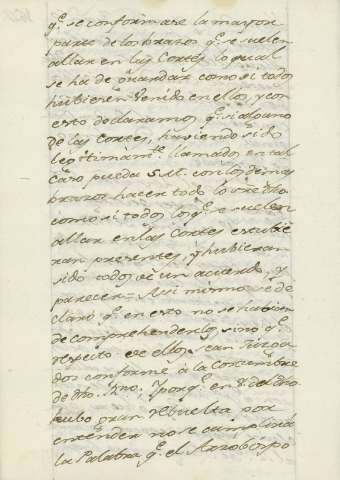 q.e se conformare la mayor
parte de los brazos q.e se suelen
allar en las Cortes, lo qual
se ha de guardar como si todos
hubieren venido en ellos, y con
esto declaramos, q.e si alguno
de las Cortes, haviendo sido
legitimam.te llamados, en tal
caso pueda S. M. con los demas
brazos hacer todo lo sre dho
como si todos los q.e se suelen
allar en las Cortes estubie
ran presentes, y hubieran
sido todos de un acuerdo, y
parecer: Asi mismo se de
claró q.e en esto no se habian
de comprehender los sino q.e
respecto de ellos sean Juzga
dos conforme à la Costumbre
de dho. Rno; Y porq.e en
hubo gran rebuelta por
entender no se cumpliria
la Palabra q.e el Arzobispo